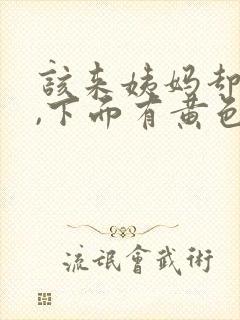 该来姨妈却
,下面有黄色
流氓會武術